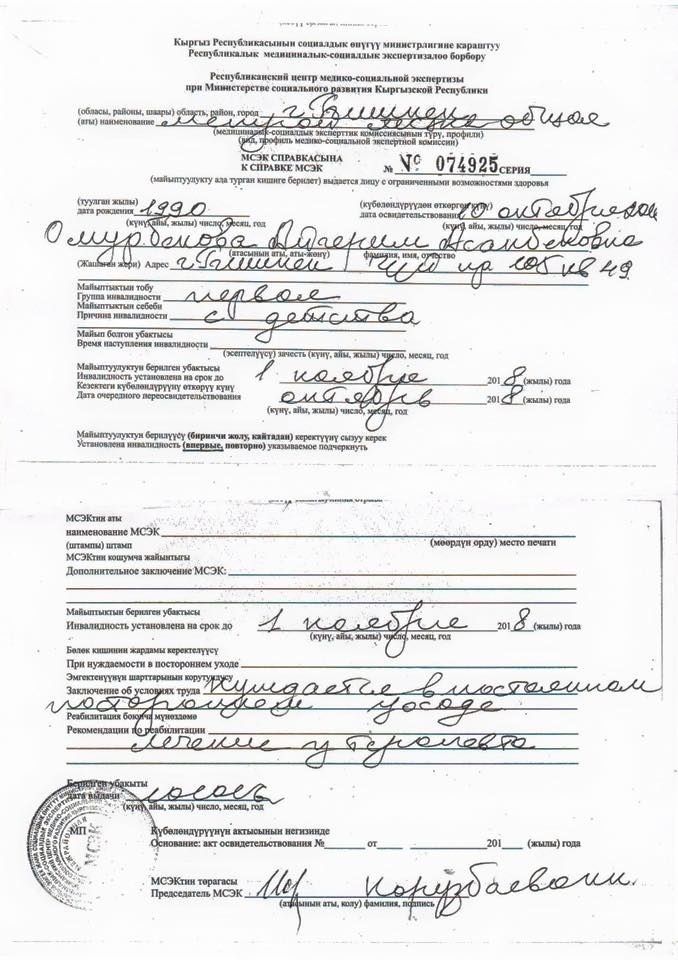 Кыргыз Республикасынын социалдык өнүгүү министрлигине караштуу
Республикалык медициналык-социалдык экспертизалоо борбору
Республиканский центр медико-социальной экспертизы
при Министерстве социального развития Кыргызской Республики
(обласы, районы, шаары) область, район, город г. Бишкек
(аты) наименование общая
(медициналык-социалдык экспертиза комиссиясынын түрү, профили)
(вид, профиль медико-социальной экспертной комиссии)
МСЭК СПРАВКАСЫНА
К СПРАВКЕ МСЭК № № 074925 СЕРИЯ
(майыптуулукту ада турган кишиге берилет) выдается лицу с ограниченными возможностями здоровья
(туулган жылы) (күбөлөндүрүүдөн өткөргөн күнү)
дата рождения 1990 дата освидетельствования 10 октября
(күнү, айы, жылы) число, месяц, год (күнү, айы, жылы) число, месяц, год
Омурбекова Айгерим Асанбековна
(атасынын аты, аты-жөнү) фамилия, имя, отчество
(Жашаган жери) Адрес г. Бишкек Чуй пр кв 49
Майыптыктын тобу
Группа инвалидности первая
Майыптыктын себеби
Причина инвалидности с детства
Майып болгон убактысы
Время наступления инвалидности
(эсептелүүсү) зачесть (күнү, айы, жылы) число, месяц, год
Майыптуулуктун берилген убактысы
Инвалидность установлена на срок до 1 ноября 2018 (жылы) года
Кезектеги күбөлөндүрүүнү өткөрүү күнү
Дата очередного переосвидетельствования октябрь 2018 (жылы) года
(күнү, айы, жылы) число, месяц, год
Майыптуулуктун берилүүсү (биринчи жолу, кайтадан) керектүүнү сызуу керек
Установлена инвалидность (впервые, повторно) указываемое подчеркнуть
МСЭКтин аты
наименование МСЭК
(штампы) штамп (мөөрдүн орду) место печати
МСЭКтин кошумча жайынтыгы
Дополнительное заключение МСЭК:
Майыптыктын берилген убактысы
Инвалидность установлена на срок до 1 ноября 2018 (жылы) года
(күнү, айы, жылы) число, месяц, год
Бөлөк кишинин жардамы керектелүүсү
При нуждаемости в постороннем уходе
Эмгектенүүнүн шарттарынын корутундусу
Заключение об условиях труда Нуждается в постоянном
постороннем уходе
Реабилитация боюнча мүнөздөмө
Рекомендации по реабилитации
лечение у терапевта
Берилген убакыты
дата выдачи
(күнү, айы, жылы) число, месяц, год
МП Күбөлөндүрүүнүн актысынын негизинде
Основание: акт освидетельствования № от 201 (жылы) года
МСЭКтин төрагасы
Председатель МСЭК
(атасынын аты, колу) фамилия, подпись
МСЭК